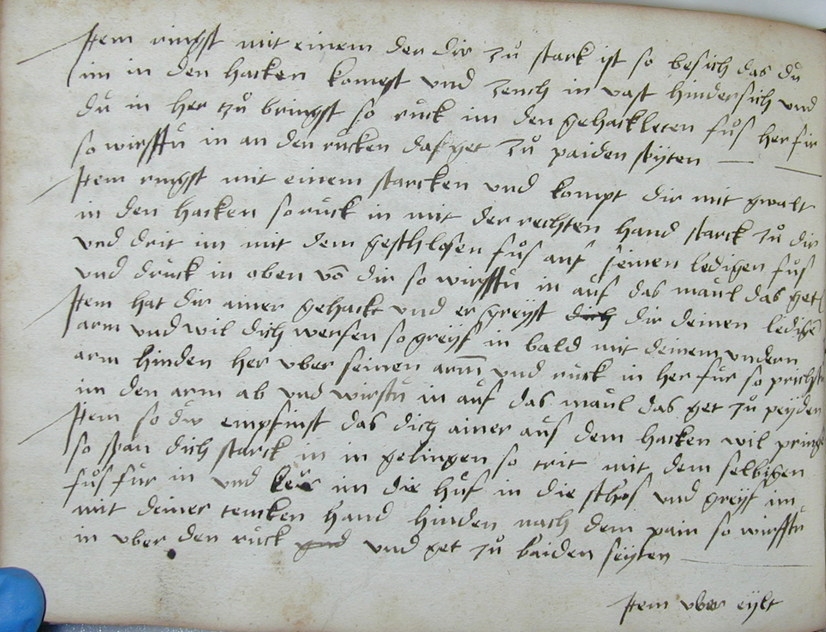 Item ringst mit einem der dir zů starck ist so besich das du
im in den hacken kompst und zeuch in vast hindersich und
du in her zů bringst so ruck im den gehackleten fůs herfir
so wirffstu in an den rucken das get zů paiden seyten
Item ringst mit einem starcken und kompt dir mit gwalt
in den hacken so ruck in mit der rechten hand starck zů dir
und drit im mit dem geschlosen fůs auf seinen ledigen fůs
und druck in oben vō dir so wirffstu in auf das maul das get
Item hat dir ainer gehackt und er greyft dich dir deinen ledigē
arm und wil dich werfen so greyf in bald mit deinem undern
arm hinden her uber seinen arm und ruck in herfur so prichstu
im den arm ab und wirfstu in auf das maul das get zů peyden
Item so du empfinst das dich ainer aus dem hacken wil pringen
so span dich starck in in gelingen so trit mit dem selbigen
fůs fur in und ker im die huf in die schos und greyf im
mit deiner rencken hand hinden nach dem pain so wirffstu
in uber den ruck und und get zů baiden seyten
Item uber eylt